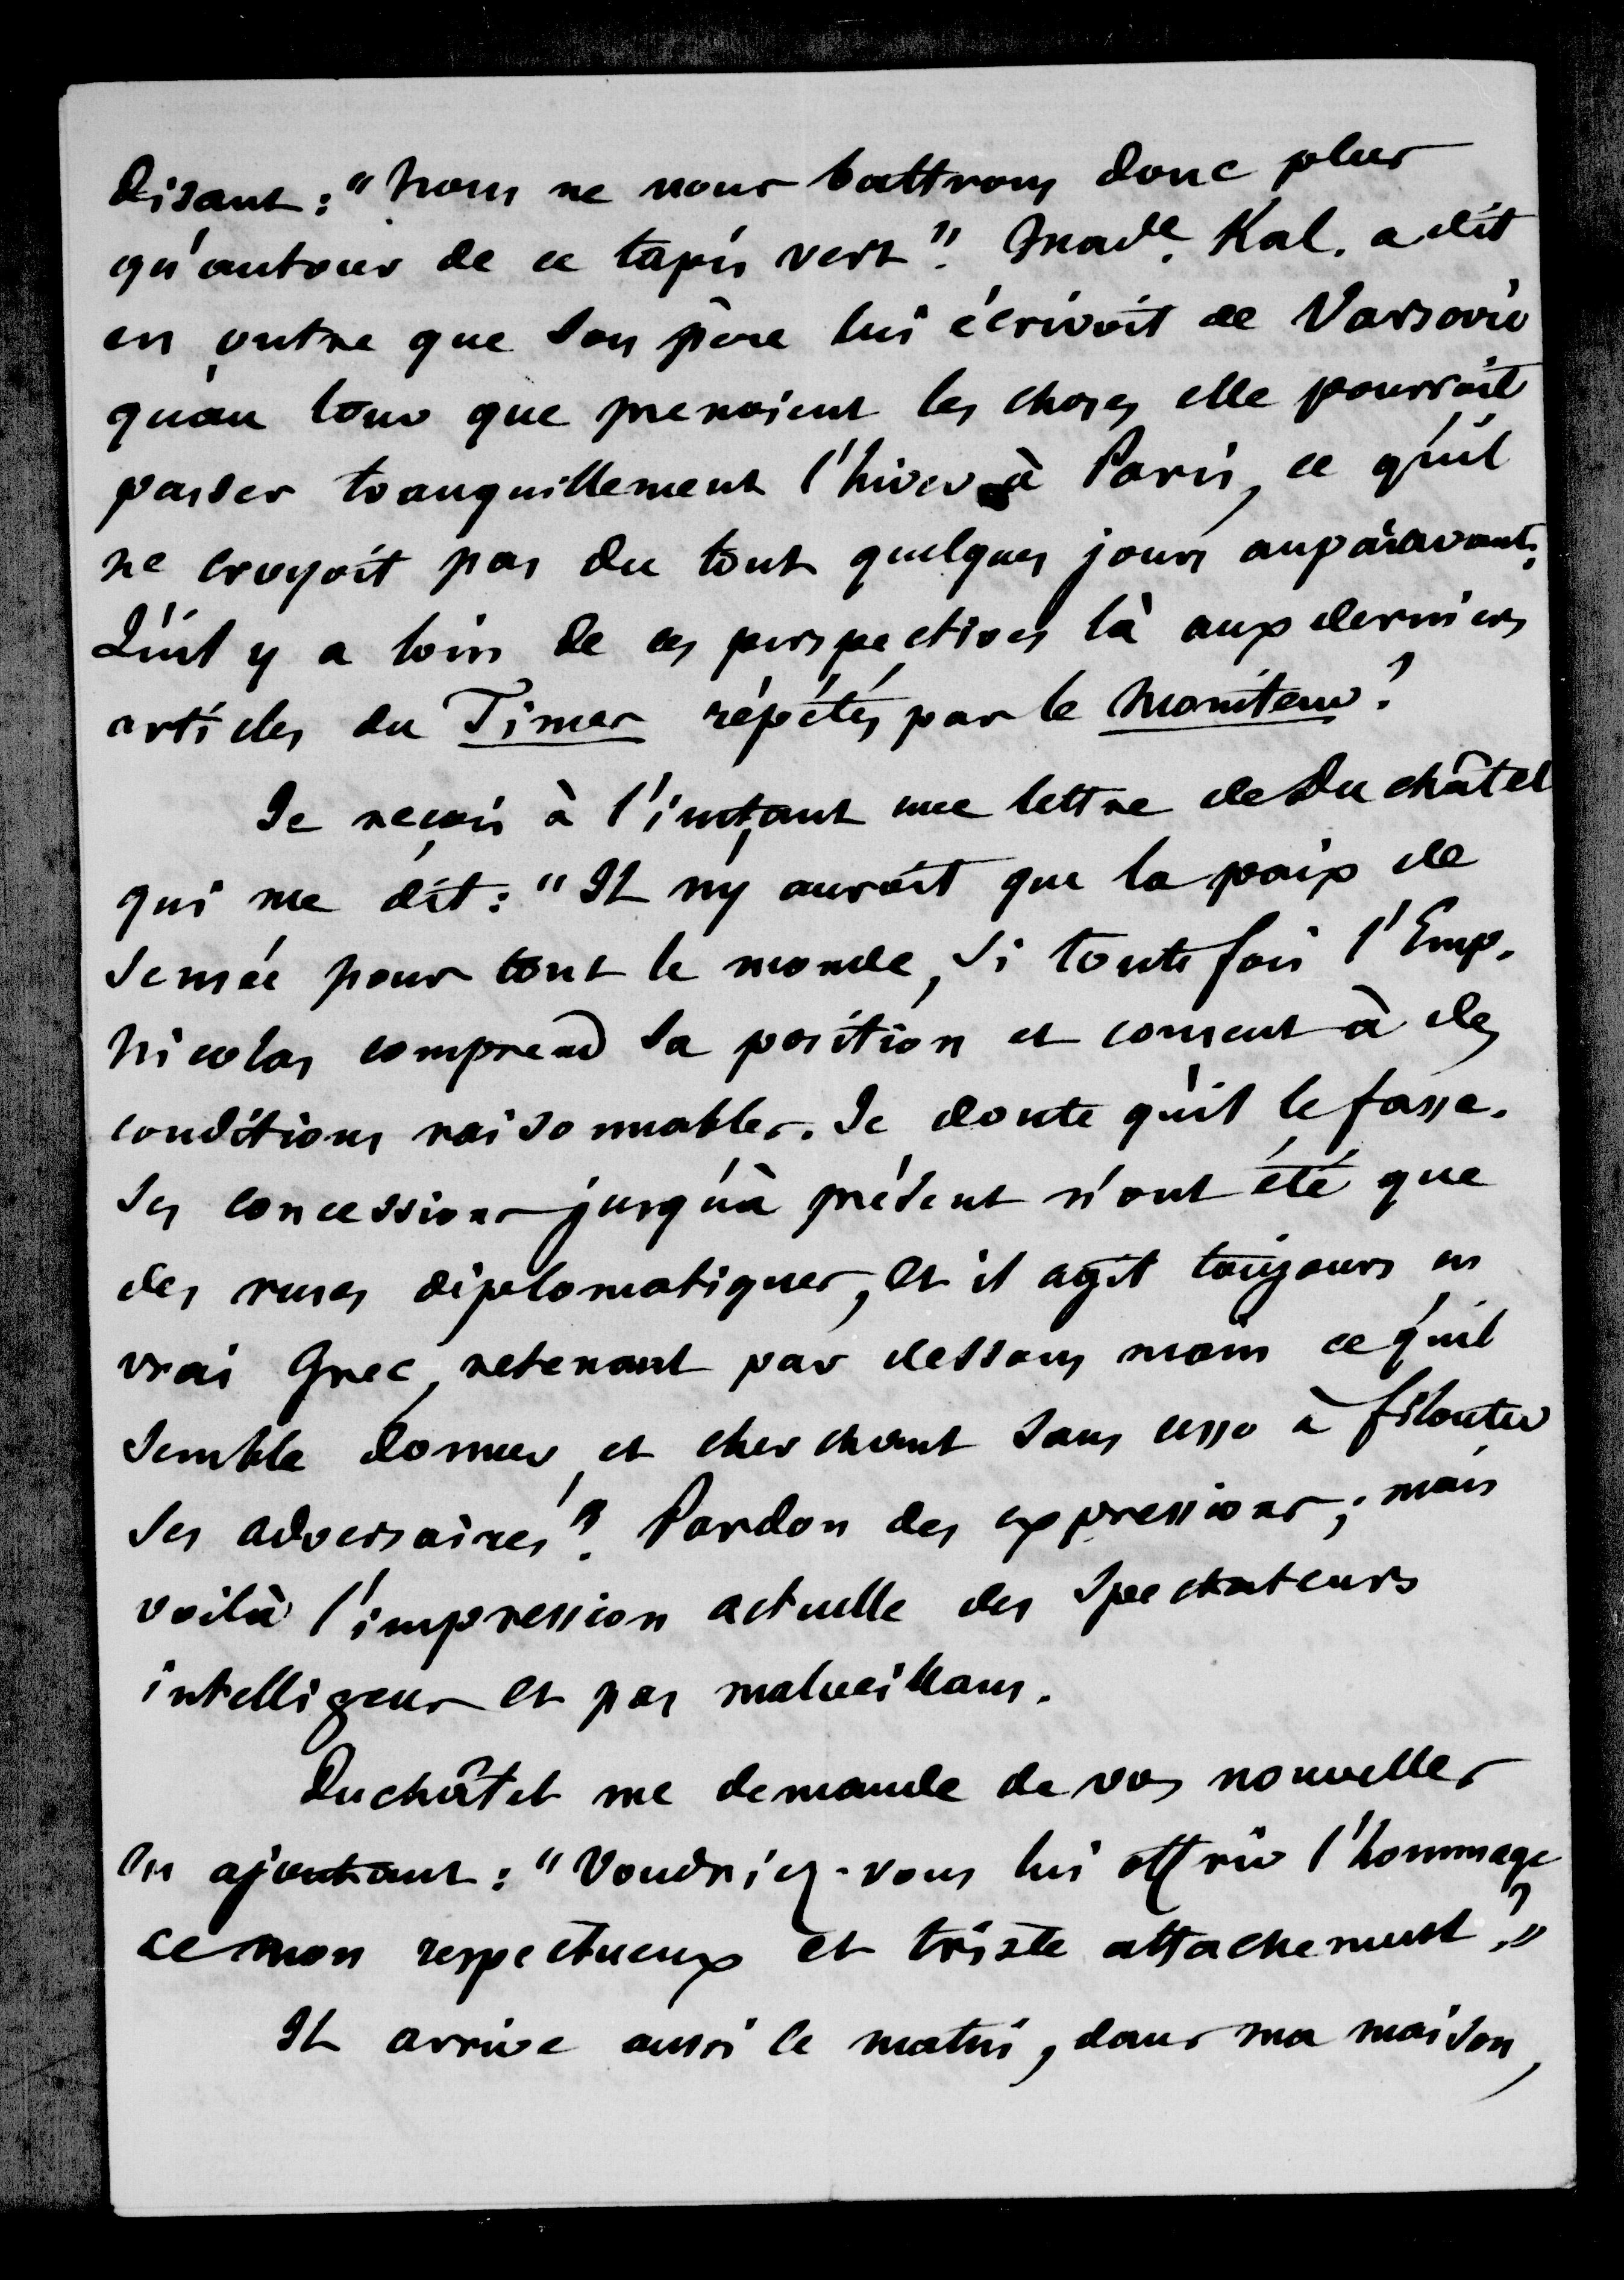 disant : "Nous ne nous battrons donc plus
qu'autour de ce tapis vert". Made. Kal. a dit
en outre que son père lui écrivoit de Varsovie
qu'au tour que prenoient les choses elle pourroit
passer tranquillement l'hiver à Paris, ce qu'il
ne croyoit pas du tout quelques jours auparavant.
Qu'il y a loin de ces perspectives là aux derniers
articles du Times répétés par le Moniteur !
Je reçois à l'instant une lettre de Duchâtel
qui me dit : "Il n'y auroit que la paix de
sensée pour tout le monde, si toutefois l'Emp.
Nicolas comprend sa position et consent à des
conditions raisonnables. Je doute qu'il le fasse.
Ses concessions jusqu'à présent n'ont été que
des ruses diplomatiques, et il agit toujours en
vrai Grec, retenant par dessous main ce qu'il
semble donner, et cherchant sans cesse à filouter
ses adversaires". Pardon des expressions ; mais
voilà l'impression actuelle des spectateurs
intelligens et pas malveillans.
Duchâtel me demande de vos nouvelles
en ajoutant : "Voudriez-vous lui offrir l'hommage
de mon respectueux et triste attachement ?"
Il arrive aussi ce matin, dans ma maison,